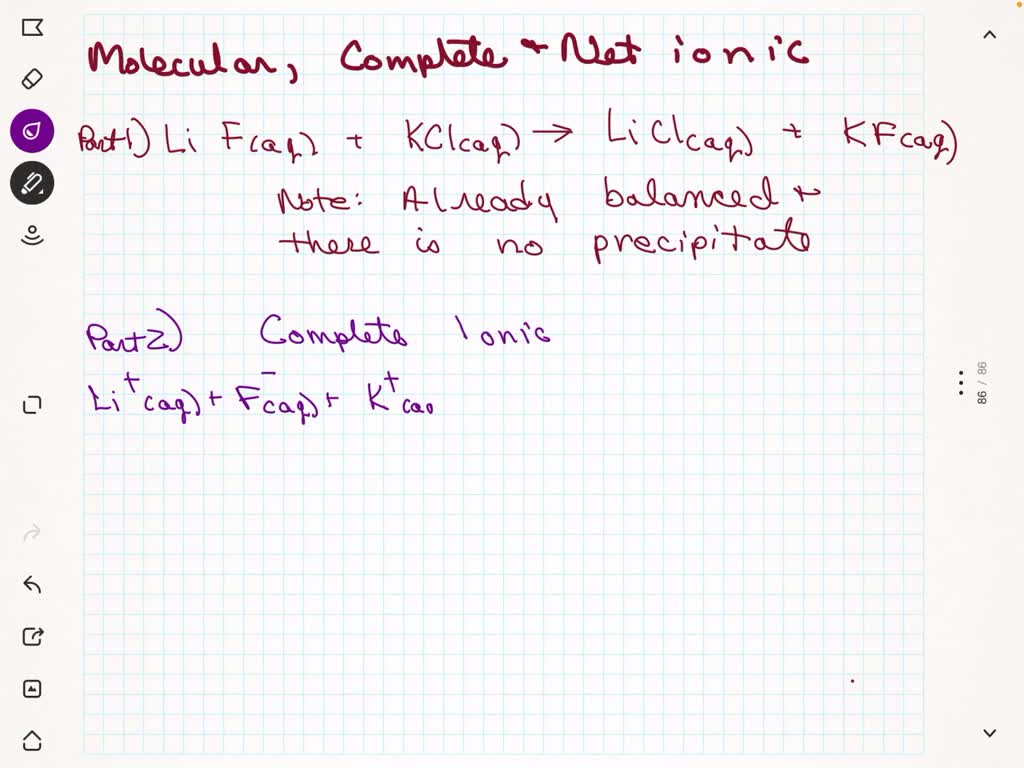 Molecular, Complete + Net ionic
Part 1) LiF(aq) + KCl(aq) → LiCl(aq) + KF(aq)
Note: Already balanced +
there is no precipitate
Part 2) Complete Ionic
Li⁺(aq) + F⁻(aq) + K⁺(aq
86 / 86